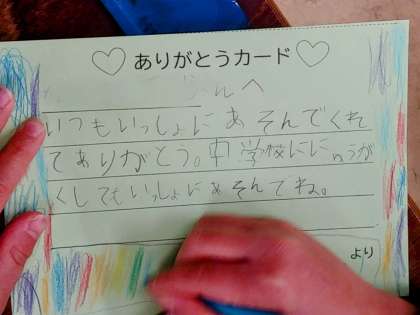 ありがとうカード
いつもいっしょにあそんでくれ
てありがとう。中学校ににゅうが
くしてもいっしょにあそんでね。
より